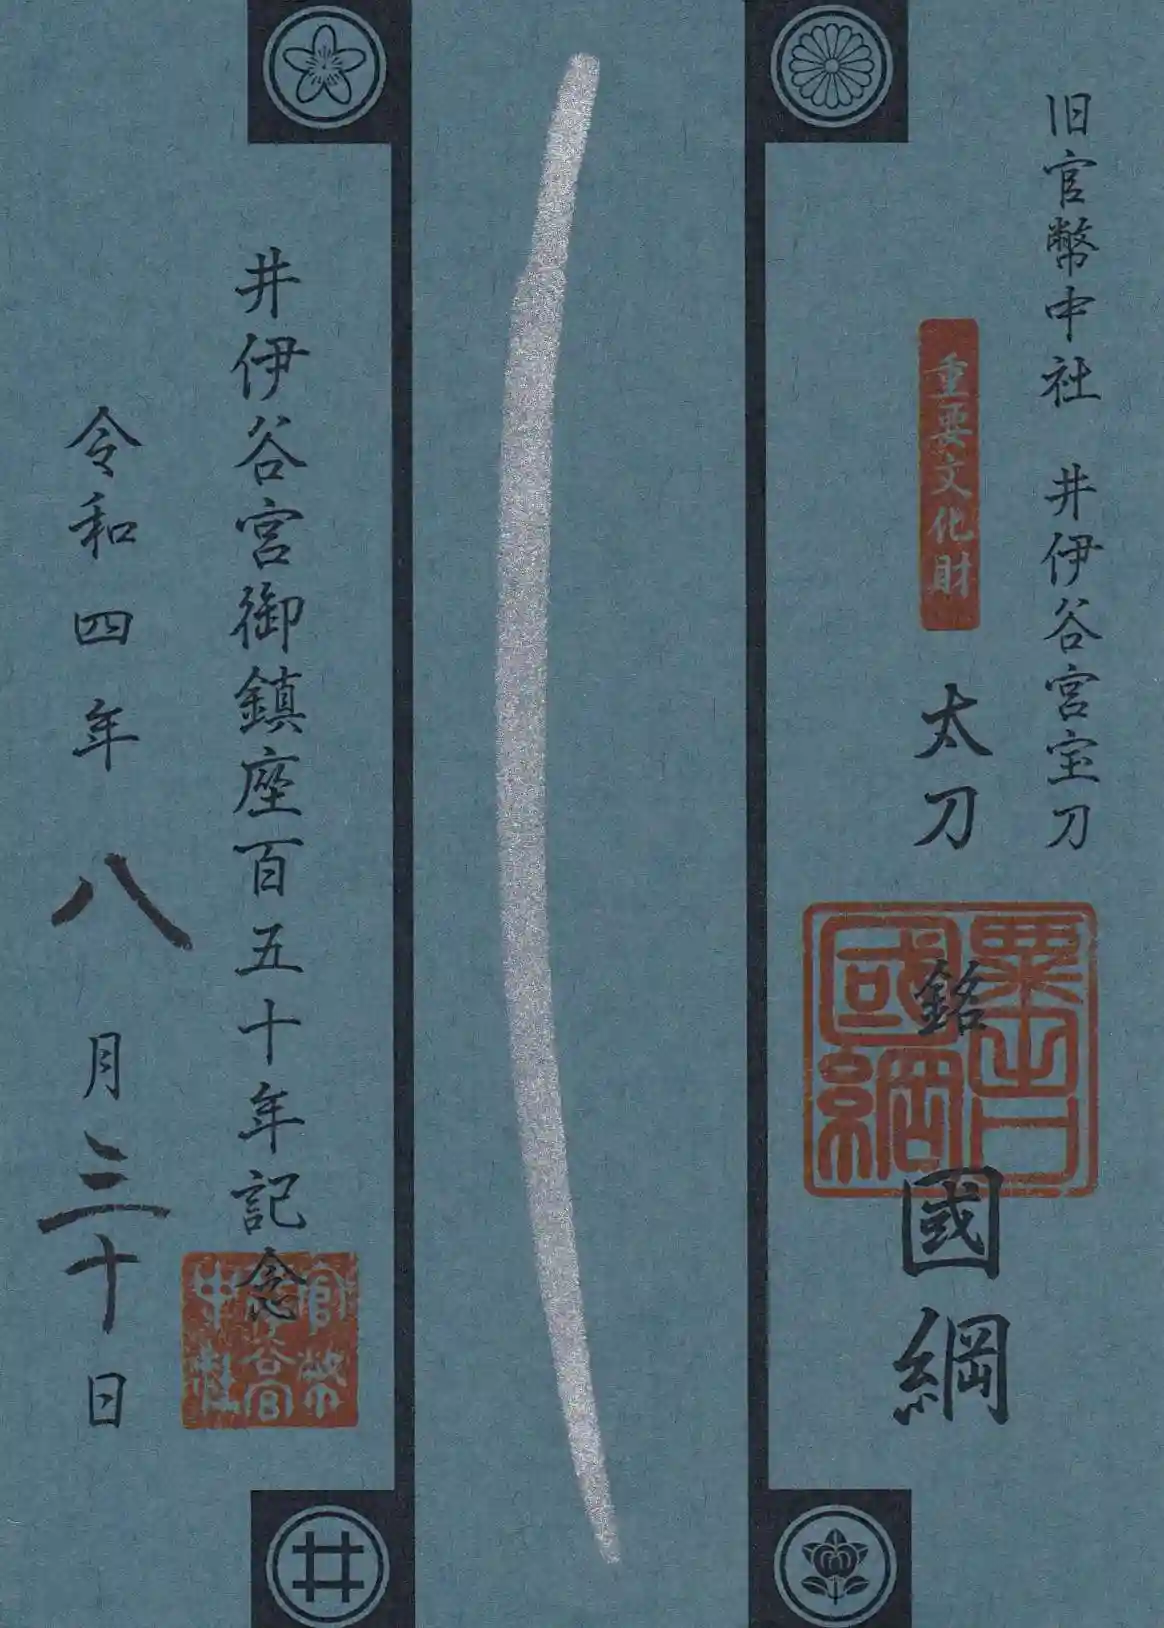 旧官幣中社　井伊谷宮宝刀
重要文化財
太刀　銘　國綱
粟田口
國綱
井伊谷宮御鎮座百五十年記念
官幣
中社
令和四年八月三十日